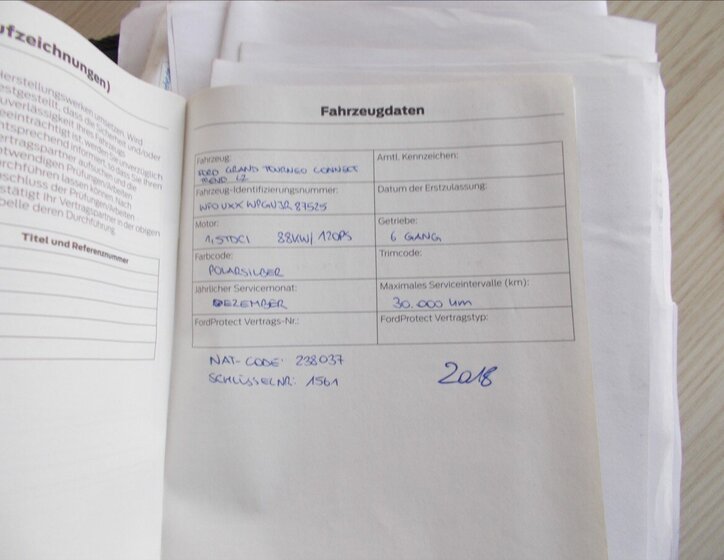 ufzeichnungen)
Herstellungswerken umsetzen. Wird
estgestellt, dass die Sicherheit und/oder
uverlässigkeit Ihres Fahrzeugs
eeinträchtigt ist, werden Sie unverzüglich
ntsprechend informiert, so dass Sie Ihren
ertragspartner aufsuchen und die
otwendigen Prüfungen/Arbeiten
urchführen lassen können. Nach
schluss der Prüfungen/Arbeiten
stätigt Ihr Vertragspartner in der obigen
belle deren Durchführung.
Titel und Referenznummer
Fahrzeugdaten
Fahrzeug: Amtl. Kennzeichen:
FORD GRAND TOURNEO CONNECT
TREND L2
Fahrzeug-Identifizierungsnummer: Datum der Erstzulassung:
WF0UXXWPGU3R87525
Motor: Getriebe:
1,5TDCI 88KW/120PS 6 GANG
Farbcode: Trimcode:
POLARSILBER
Jährlicher Servicemonat: Maximales Serviceintervalle (km):
DEZEMBER 30.000 km
FordProtect Vertrags-Nr.: FordProtect Vertragstyp:
NAT-CODE: 238037
SCHLÜSSELNR: 1561
2018